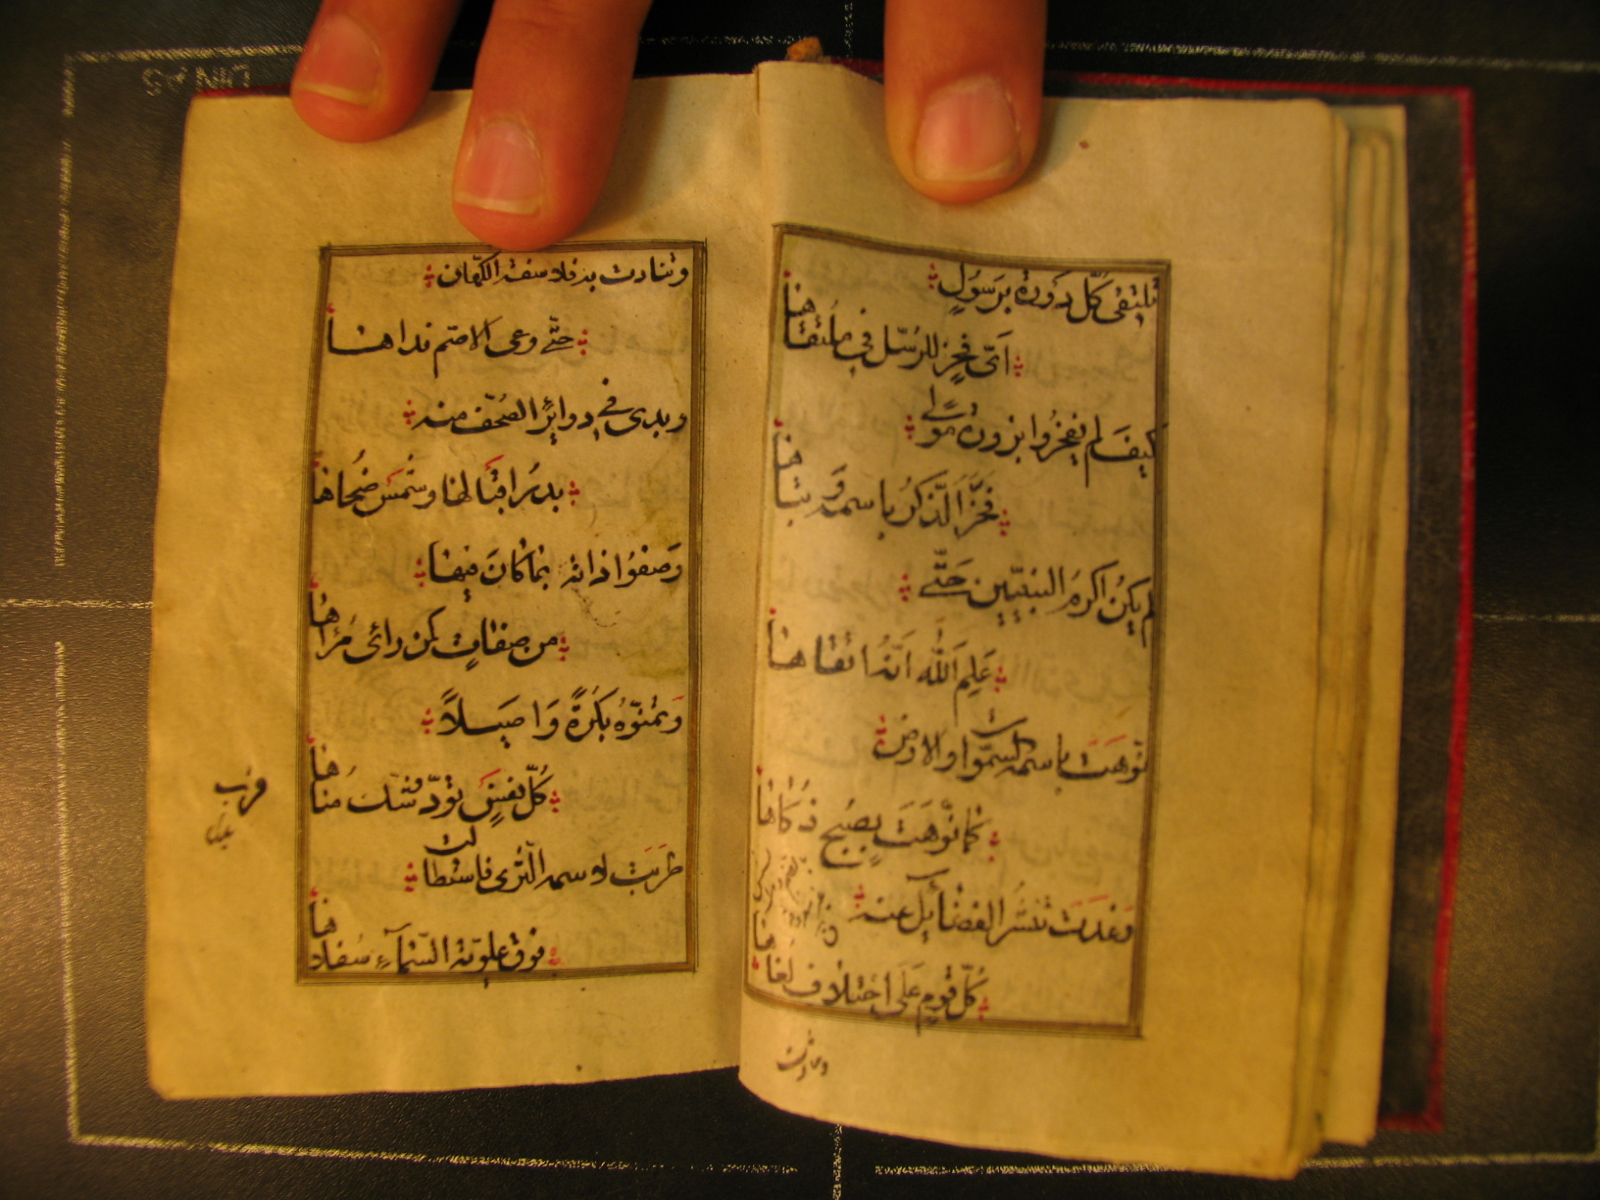 تلتقى كل دورة برسول
اىّ فخر للرسل فى ملتقاها
كيف لم يفخروا بزورة مولى
فخر الذكر باسمه وتباها
لم يكن اكرم النبيين حتّى
علم الله انّه اتقاها
نوّهت باسمه السموات والارض
كما نوّهت بصبح ذكاها
وغدت تنشر الفضائل عنه
كل قوم على اختلاف لغاها
وتنادت به فلاسفة الكهّان
حتّى وعى الاصمّ نداها
وبدى فى دوائر الصحف منه
بدر اقبالها وشمس ضحاها
وصفوا ذاته بما كان فيها
من صفات كمن رائ مرآها
وتمنّوه بكرة واصيلا
كل نفس تودّ وشك مناها
طربت لاسمه الثرى فاستطالت
فوق علوية السمآء سفلاها